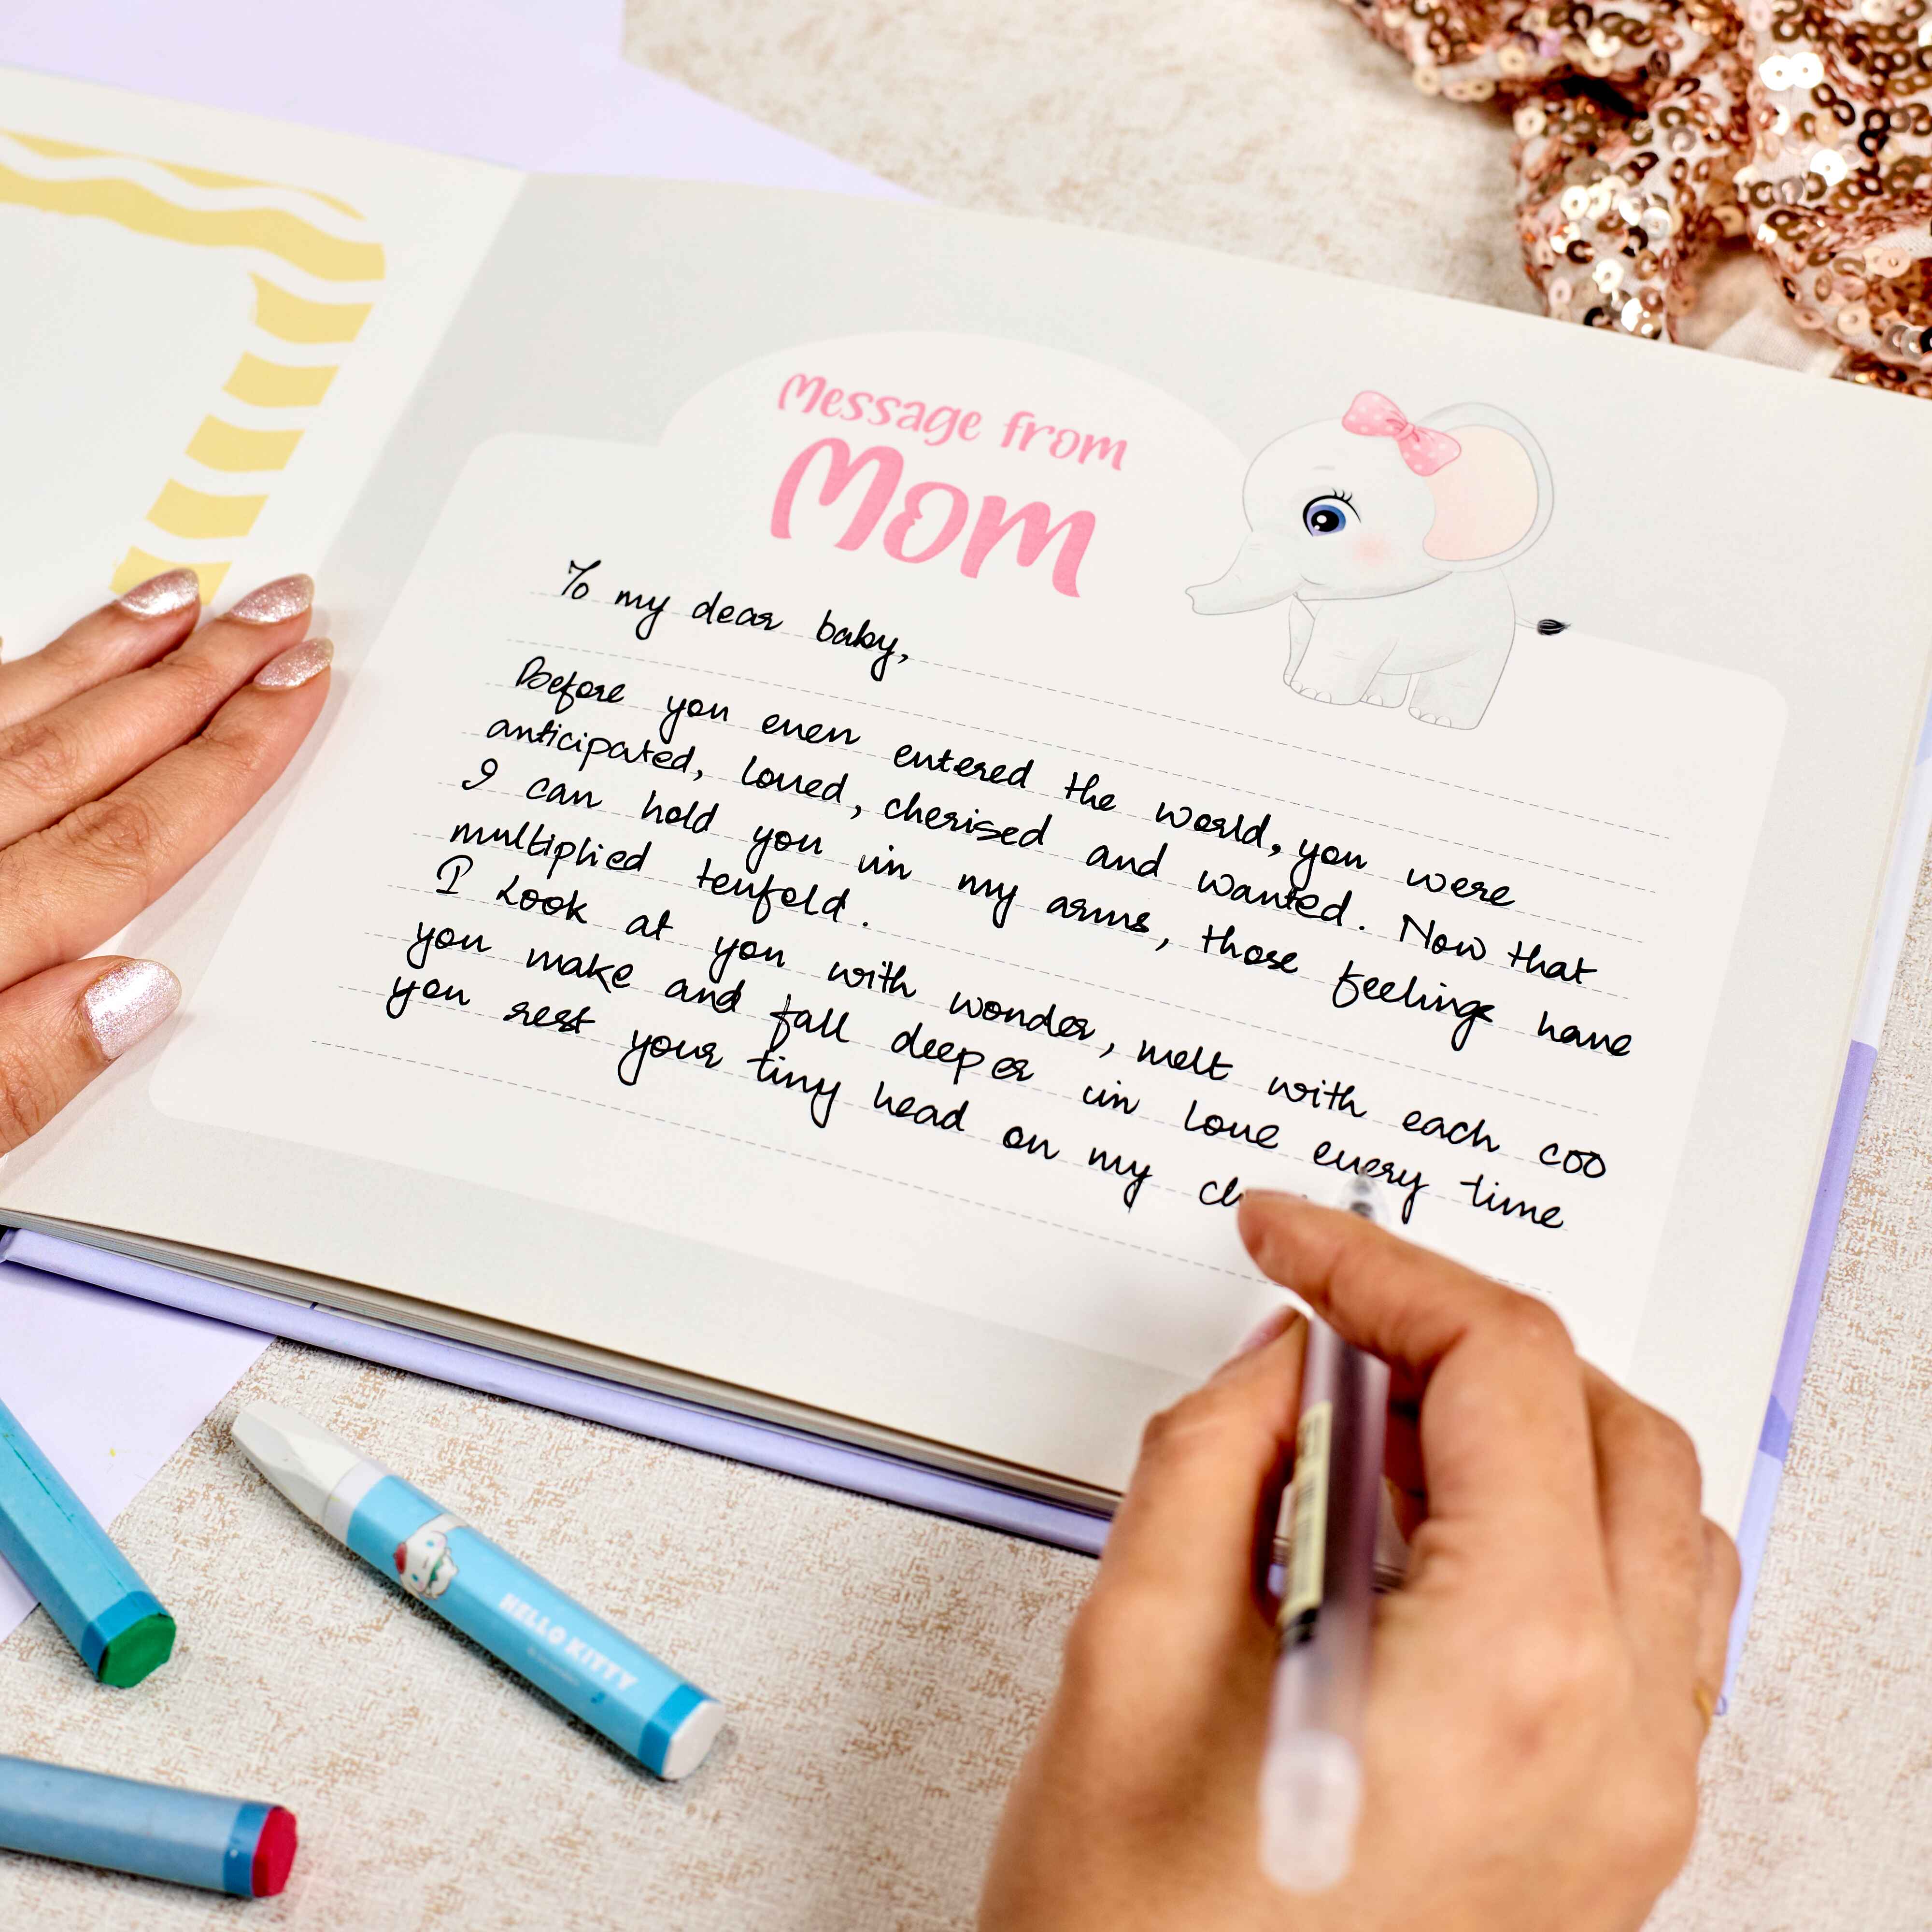 Message from
Mom
To my dear baby,
Before you even entered the world, you were
anticipated, loved, cherised and wanted. Now that
I can hold you in my arms, those feelings have
multiplied tenfold.
I look at you with wonder, melt with each coo
you make and fall deeper in love every time
you rest your tiny head on my
HELLO KITTY